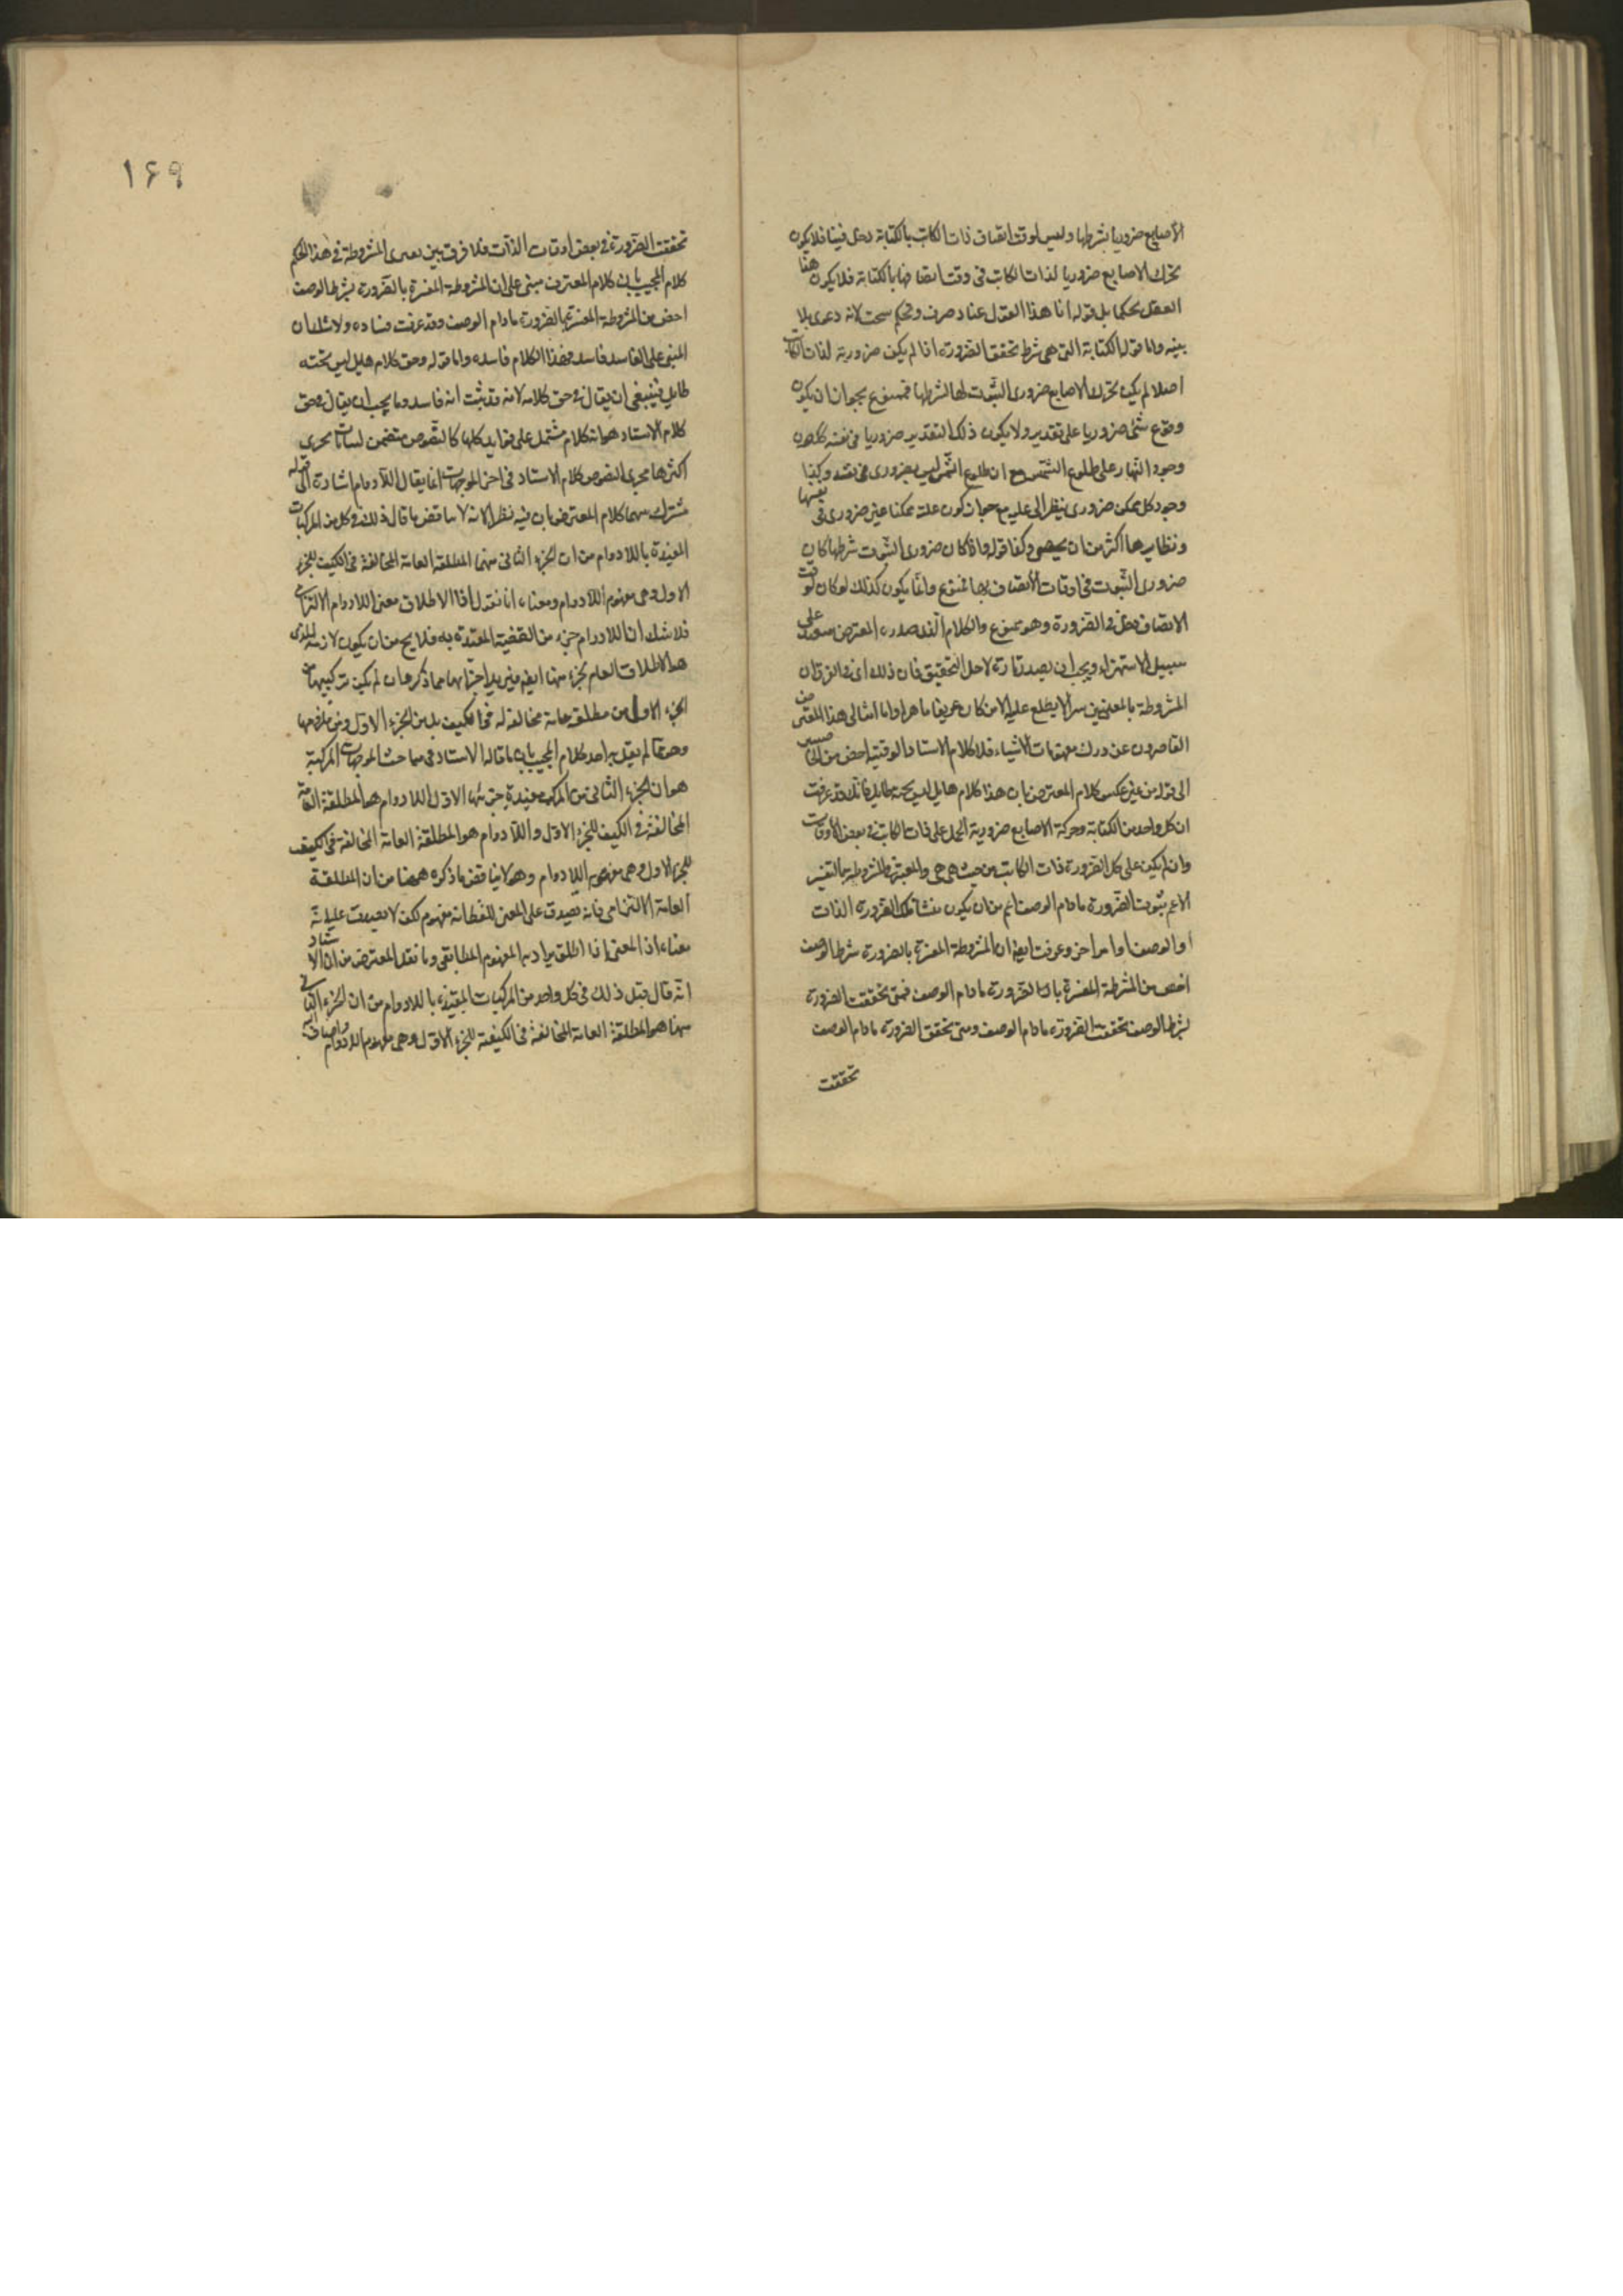 الأصابع ضروريا بشرطها وليس لوقت اتصاف ذات الكاتب بالكتابة دخل فينا فلا يكون
تحرك الاصابع ضروريا لذات الكاتب فى وقت اتصافها بالكتابة فلا يكون هنا
العقل بحكما بل قوله انا هذا القول عناد صرف وتحكم بحت لانه دعوى بلا
بينة واما قوله الكتابة التى هى شرط تحقق الضرورة اذا لم يكن ضرورية لذات الكاتب
اصلا لم يكن تحرك الاصابع ضرورى الثبوت لها بشرطها فممنوع بجواز ان يكون
وقوع شئ ضروريا على تقدير ولا يكون ذلك التقدير ضروريا فى نفسه كضرورة
وجود النهار على طلوع الشمس مع ان طلوع الشمس ليس بضرورى فى نفسه وكذا
وجود كل ممكن ضرورى بنظر الى علته مع جواز كون علته ممكنا غير ضرورى فى نفسها
ونظايرها اكثر من ان يحصى وكذا قوله واذا كان ضرورى الثبوت بشرطها كان
ضرورى الثبوت فى اوقات الأتصاف بها ممنوع وانما يكون كذلك لو كان لوقت
الاتصاف دخل فى الضرورة وهو ممنوع والكلام الذى صدر من المعترض على
سبيل الاستهزاء ويجب ان يصدر تارة لاجل التحقيق فان ذلك اى الفرق ان
المشروطة بالمعنيين سر لا يطلع عليه الا من كان عريفا ماهرا واما امثالى هذا المعترض
القاصرون عن درك مفهومات الأشياء فلا كلام الاستاد الوقتية اخص من
الى قوله من غير عكس كلام المعترض بان هذا كلام هايل ليس تحته طايل فانك قد عرفت
ان كل واحد من الكتابة وحركة الاصابع ضرورية الحمل على ذات الكاتب فى بعض الأوقات
وان لم يكن على كل الضرورة ذات الكاتب من حيث هى هى والمعتبر فى المشروطة بالتفسير
الاعم ثبوت الضرورة مادام الوصف اعم من ان يكون منشأ تلك الضرورة الذات
أو الوصف او امر اخر وعرفت ايضا ان المشروطة المفسرة بالضرورة بشرط الوصف
اخص من المشروطة المفسرة بالضرورة مادام الوصف فمتى تحققت الضرورة
بشرط الوصف تحققت الضرورة مادام الوصف ومتى تحقق الضرورة مادام الوصف
تحققت
۱۶۹
تحققت الضرورة فى بعض اوقات الذات فلا فرق بين المشروطة فى هذا الحكم
كلام المجيب بان كلام المعترض مبنى على ان المشروطة المفسرة بالضرورة بشرط الوصف
اخص من المشروطة المفسرة بالضرورة مادام الوصف وقد عرفت فساده ولا شك ان
المبنى على الفاسد فاسد فهذا الكلام فاسد واما قوله وحق كلام هايل ليس تحته
طايل فينبغى ان يقال فى حق كلامه لانه قد ثبت انه فاسد وما يجب ان يقال فى حق
كلام الاستاد هو انه كلام مشتمل على فوايد كلها كالنصوص متضمن
اكثرها مجرى النصوص كلام الاستاد فى اخر الموجهات انما يقال اللادوام اشارة الى قوله
مشترك بينهما كلام المعترض بان فيه نظر لانه لا يناقض ما قال ذلك فى كل من المركبات
المقيدة باللادوام من ان الجزء الثانى منهما المطلقة العامة المخالفة فى الكيف للجزء
الاول وهى مفهوم اللادوام ومعناه انا نقول اذا الاطلاق معنى اللادوام الالتزامى
فلا شك ان اللادوام جزء من القضية المقيدة به فلا يخ من ان يكون لازمه الذى
هو الاطلاق العام بجزء منها ايضا فيزيد اجزائها مما ذكر هان لم يكن تركيبها من
الجزء الاول من مطلقة عامة مخالفة له فى الكيف بل من الجزء الاول ومن ملزومها
وهو مما لم يقل به احد كلام المجيب بان ما قاله الاستاد فى مباحث الموجهات المركبة
هو ان الجزء الثانى من المركب مقيدة جزئها الاول اللادوام هو المطلقة العامة
المخالفة فى الكيف للجزء الاول واللادوام هو المطلقة العامة المخالفة فى الكيف
للجزء الاول وهى مفهوم اللادوام وهو لا يناقض ما ذكره ههنا من ان المطلقة
العامة الالتزامى فانه يصدق على المعنى اللفظ انه مفهوم لكن لا يصدق عليه انه
معناه اذ المعنى اذا اطلق يراد به المفهوم المطابقى وما نقل المعترض من ان الاستاد
انه قال قبل ذلك فى كل واحد من المركبات المقيدة باللادوام من ان الجزء الثانى
منها هو المطلقة العامة المخالفة فى الكيفية للجزء الاول وهى مفهوم اللادوام